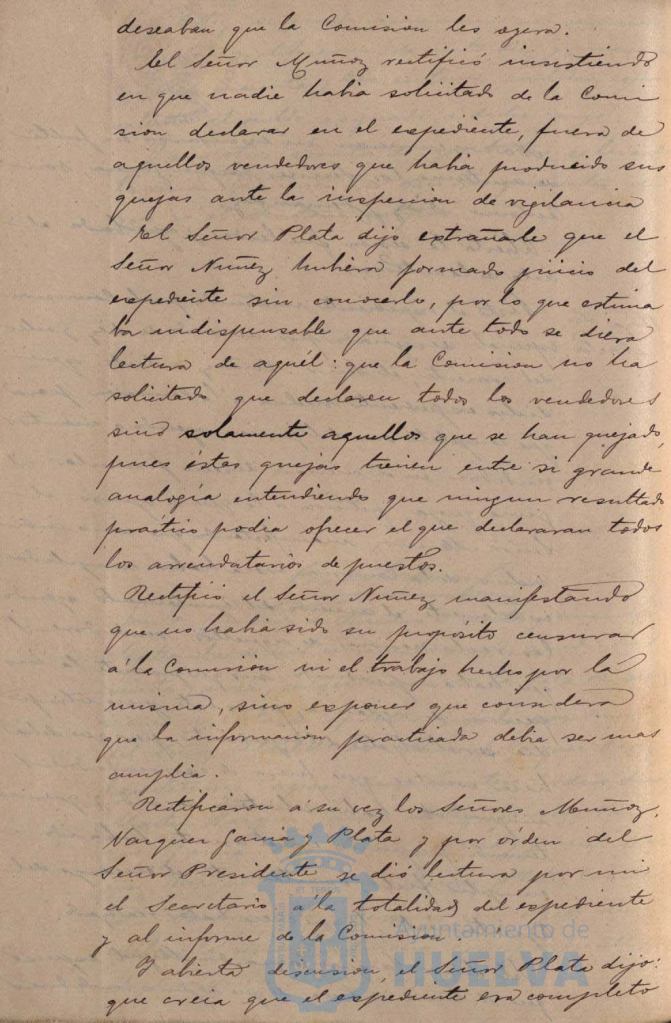 deseaban que la Comision les oyera.
El Señor Muñoz rectificó insistiendo
en que nadie habia solicitado de la Comi
sion declarar en el expediente, fuera de
aquellos vendedores que habia producido sus
quejas ante la inspeccion de vigilancia
El Señor Plata dijo extrañarle que el
Señor Nuñez hubiera formado juicio del
expediente sin conocerlo, por lo que estima
ba indispensable que ante todo se diera
lectura de aquél: que la Comision no ha
solicitado que declaren todos los vendedores
sinó solamente aquellos que se han quejado,
pues éstas quejas tienen entre si grande
analogía entendiendo que ningun resultado
práctico podia ofrecer el que declararan todos
los arrendatarios de puestos.
Rectificó el Señor Nuñez manifestando
que no habia sido su propósito censurar
á la Comision ni el trabajo hecho por la
misma, sino exponer que considera
que la informacion practicada debia ser mas
amplia.
Rectificaron á su vez los Señores Muñoz,
Vazquez Garcia y Plata y por órden del
Señor Presidente se dió lectura por mi
el Secretario á la totalidad del expediente
y al informe de la Comision.
Y abierta discusion, el Señor Plata dijo:
que creia que el expediente era completo
Ayuntamiento de
HUELVA